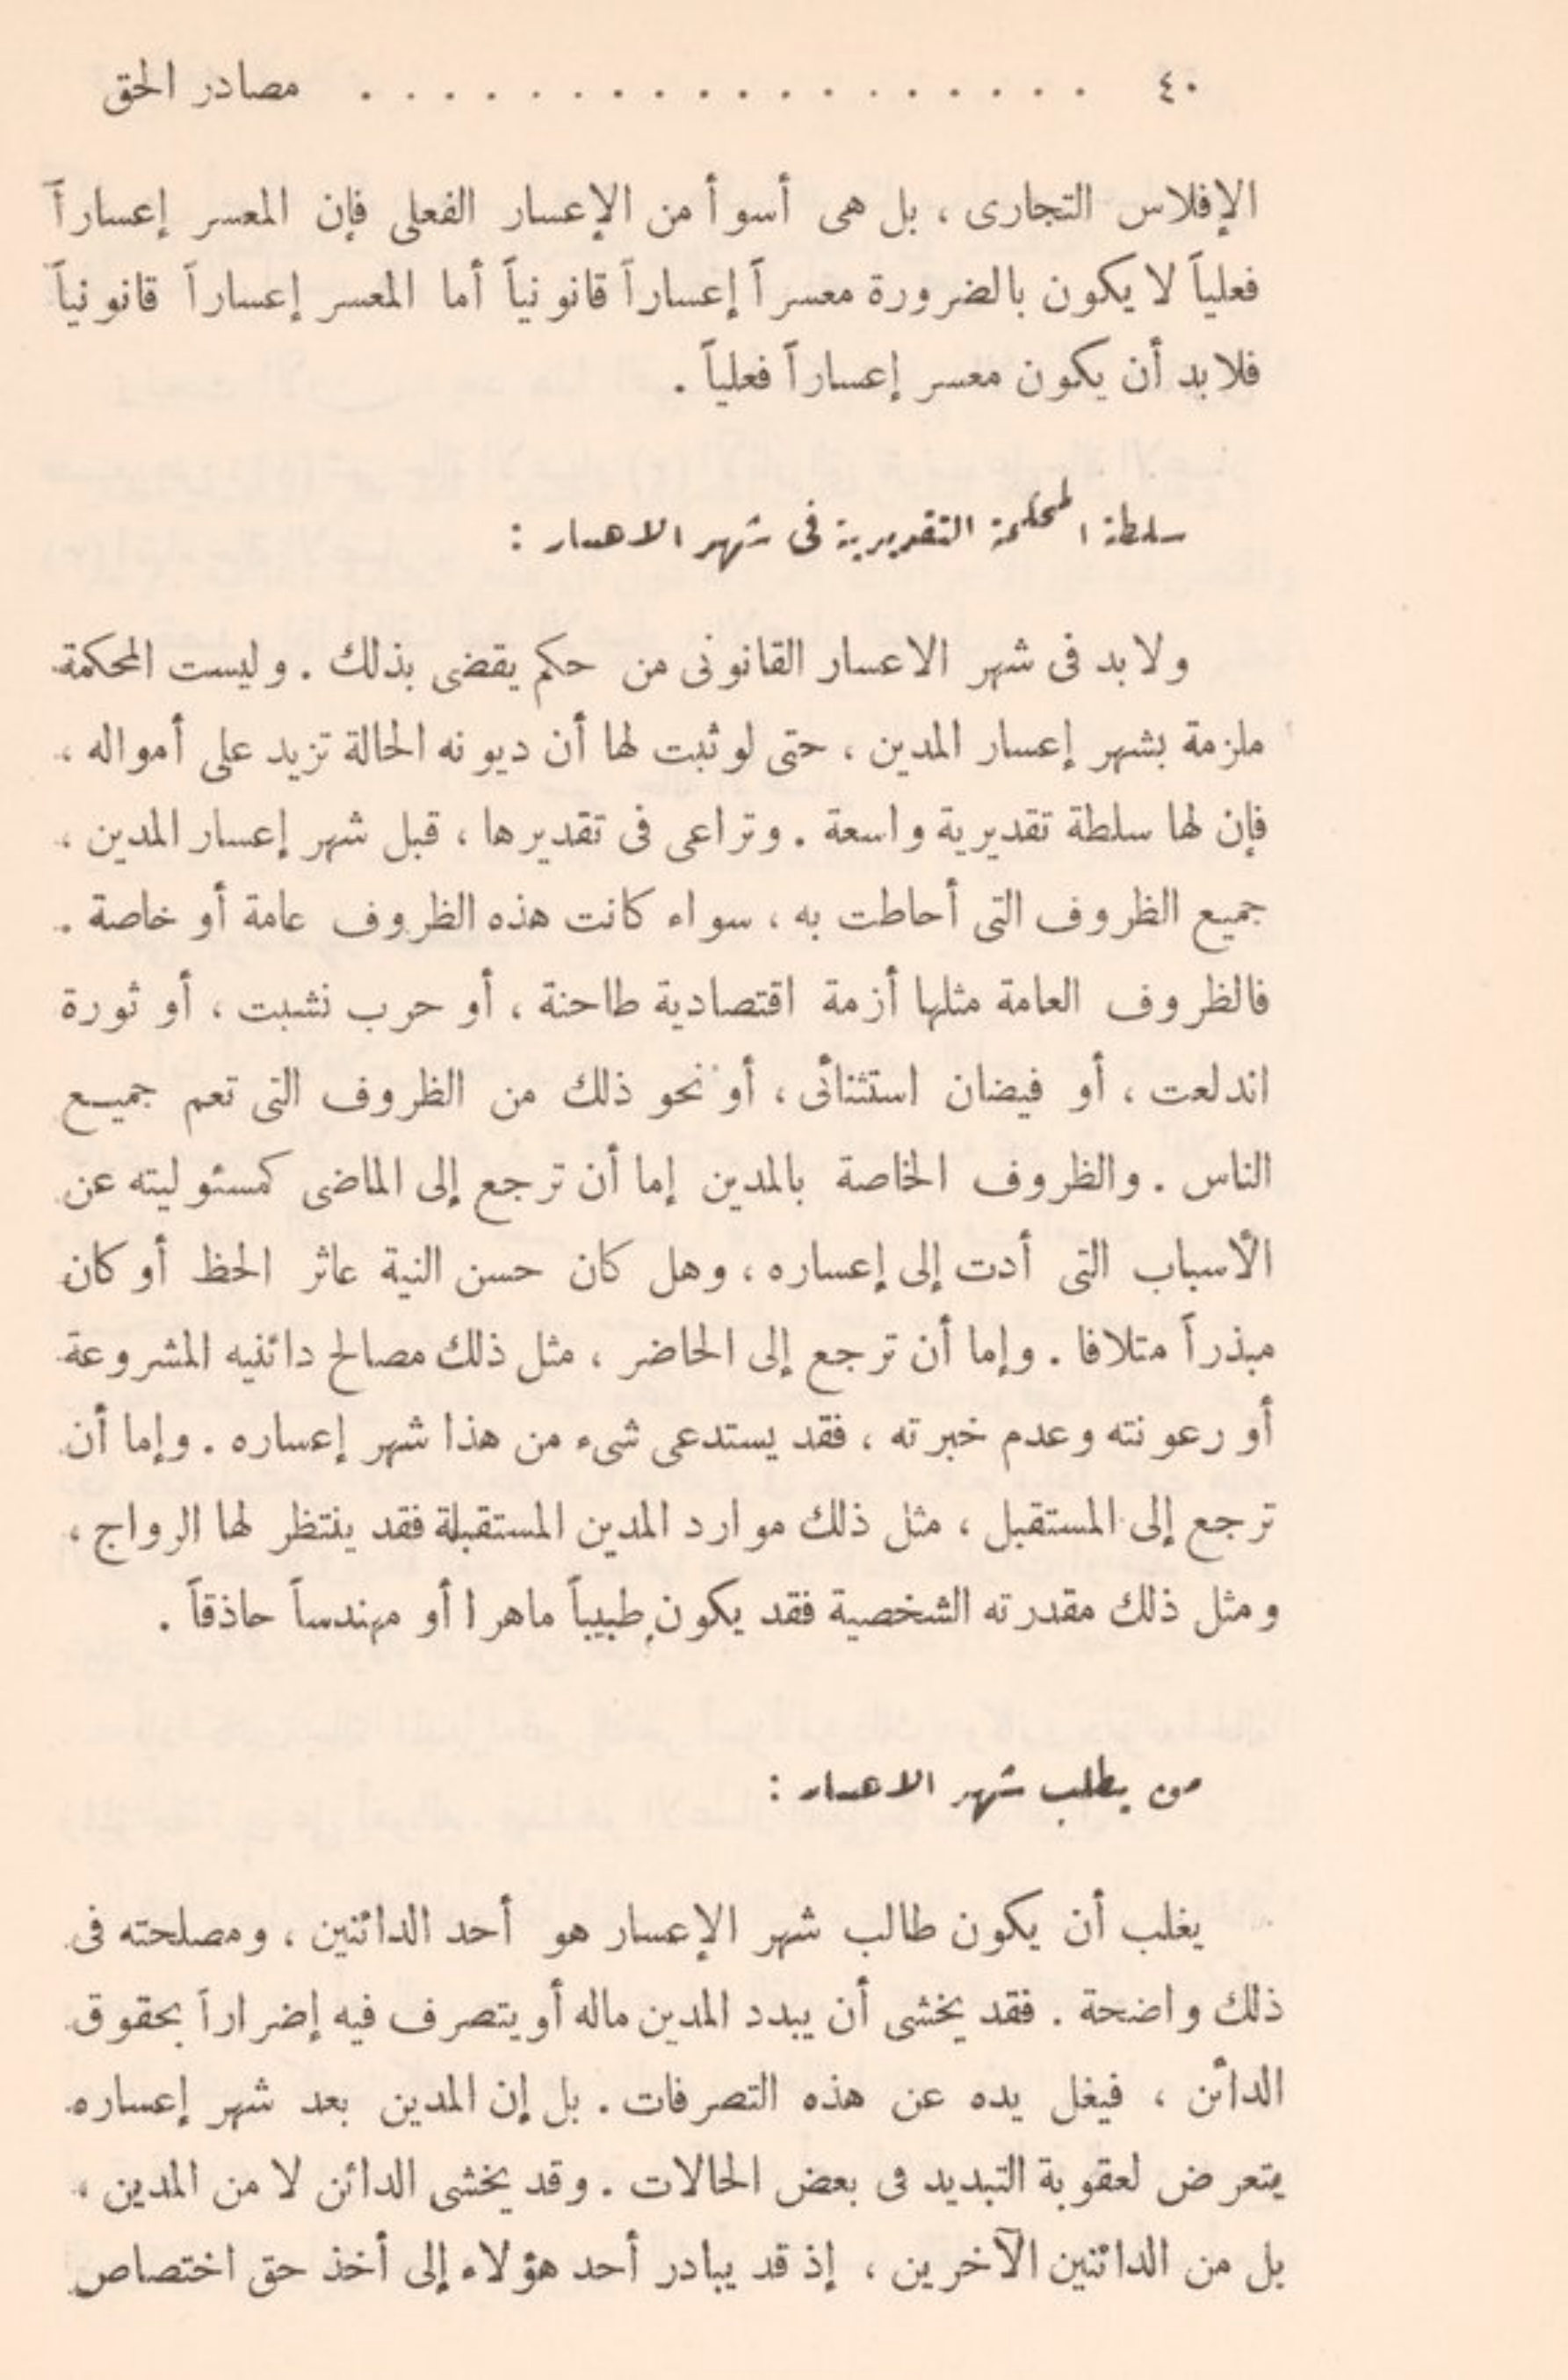 ٤٠ . . . . . . . . . . . . . . . . . . مصادر الحق
الإفلاس التجارى ، بل هى أسوأ من الإعسار الفعلى فإن المعسر إعساراً
فعلياً لا يكون بالضرورة معسراً إعساراً قانونياً أما المعسر إعساراً قانونياً
فلابد أن يكون معسر إعساراً فعلياً .
سلطة المحكمة التقديرية فى شهر الاعسار :
ولابد فى شهر الاعسار القانونى من حكم يقضى بذلك . وليست المحكمة
ملزمة بشهر إعسار المدين ، حتى لو ثبت لها أن ديونه الحالة تزيد على أمواله ،
فإن لها سلطة تقديرية واسعة . وتراعى فى تقديرها ، قبل شهر إعسار المدين ،
جميع الظروف التى أحاطت به ، سواء كانت هذه الظروف عامة أو خاصة .
فالظروف العامة مثلها أزمة اقتصادية طاحنة ، أو حرب نشبت ، أو ثورة
اندلعت ، أو فيضان استثنائى ، أو نحو ذلك من الظروف التى تعم جميع
الناس . والظروف الخاصة بالمدين إما أن ترجع إلى الماضى كمسئوليته عن
الأسباب التى أدت إلى إعساره ، وهل كان حسن النية عاثر الحظ أو كان
مبذراً متلافا . وإما أن ترجع إلى الحاضر ، مثل ذلك مصالح دائنيه المشروعة
أو رعونته وعدم خبرته ، فقد يستدعى شىء من هذا شهر إعساره . وإما أن
ترجع إلى المستقبل ، مثل ذلك موارد المدين المستقبلة فقد ينتظر لها الرواج ،
ومثل ذلك مقدرته الشخصية فقد يكون طبيباً ماهرا أو مهندساً حاذقاً .
من يطلب شهر الاعسار :
يغلب أن يكون طالب شهر الإعسار هو أحد الدائنين ، ومصلحته فى
ذلك واضحة . فقد يخشى أن يبدد المدين ماله أو يتصرف فيه إضراراً بحقوق
الدائن ، فيغل يده عن هذه التصرفات . بل إن المدين بعد شهر إعساره
يتعرض لعقوبة التبديد فى بعض الحالات . وقد يخشى الدائن لا من المدين ،
بل من الدائنين الآخرين ، إذ قد يبادر أحد هؤلاء إلى أخذ حق اختصاص